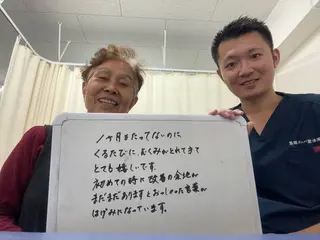 1ヶ月もたってないのに、
くるたびに、むくみがとれてきて
とても嬉しいです。
初めての時に改善の余地が
まだまだありますとおっしゃった言葉が
はげみになっています。